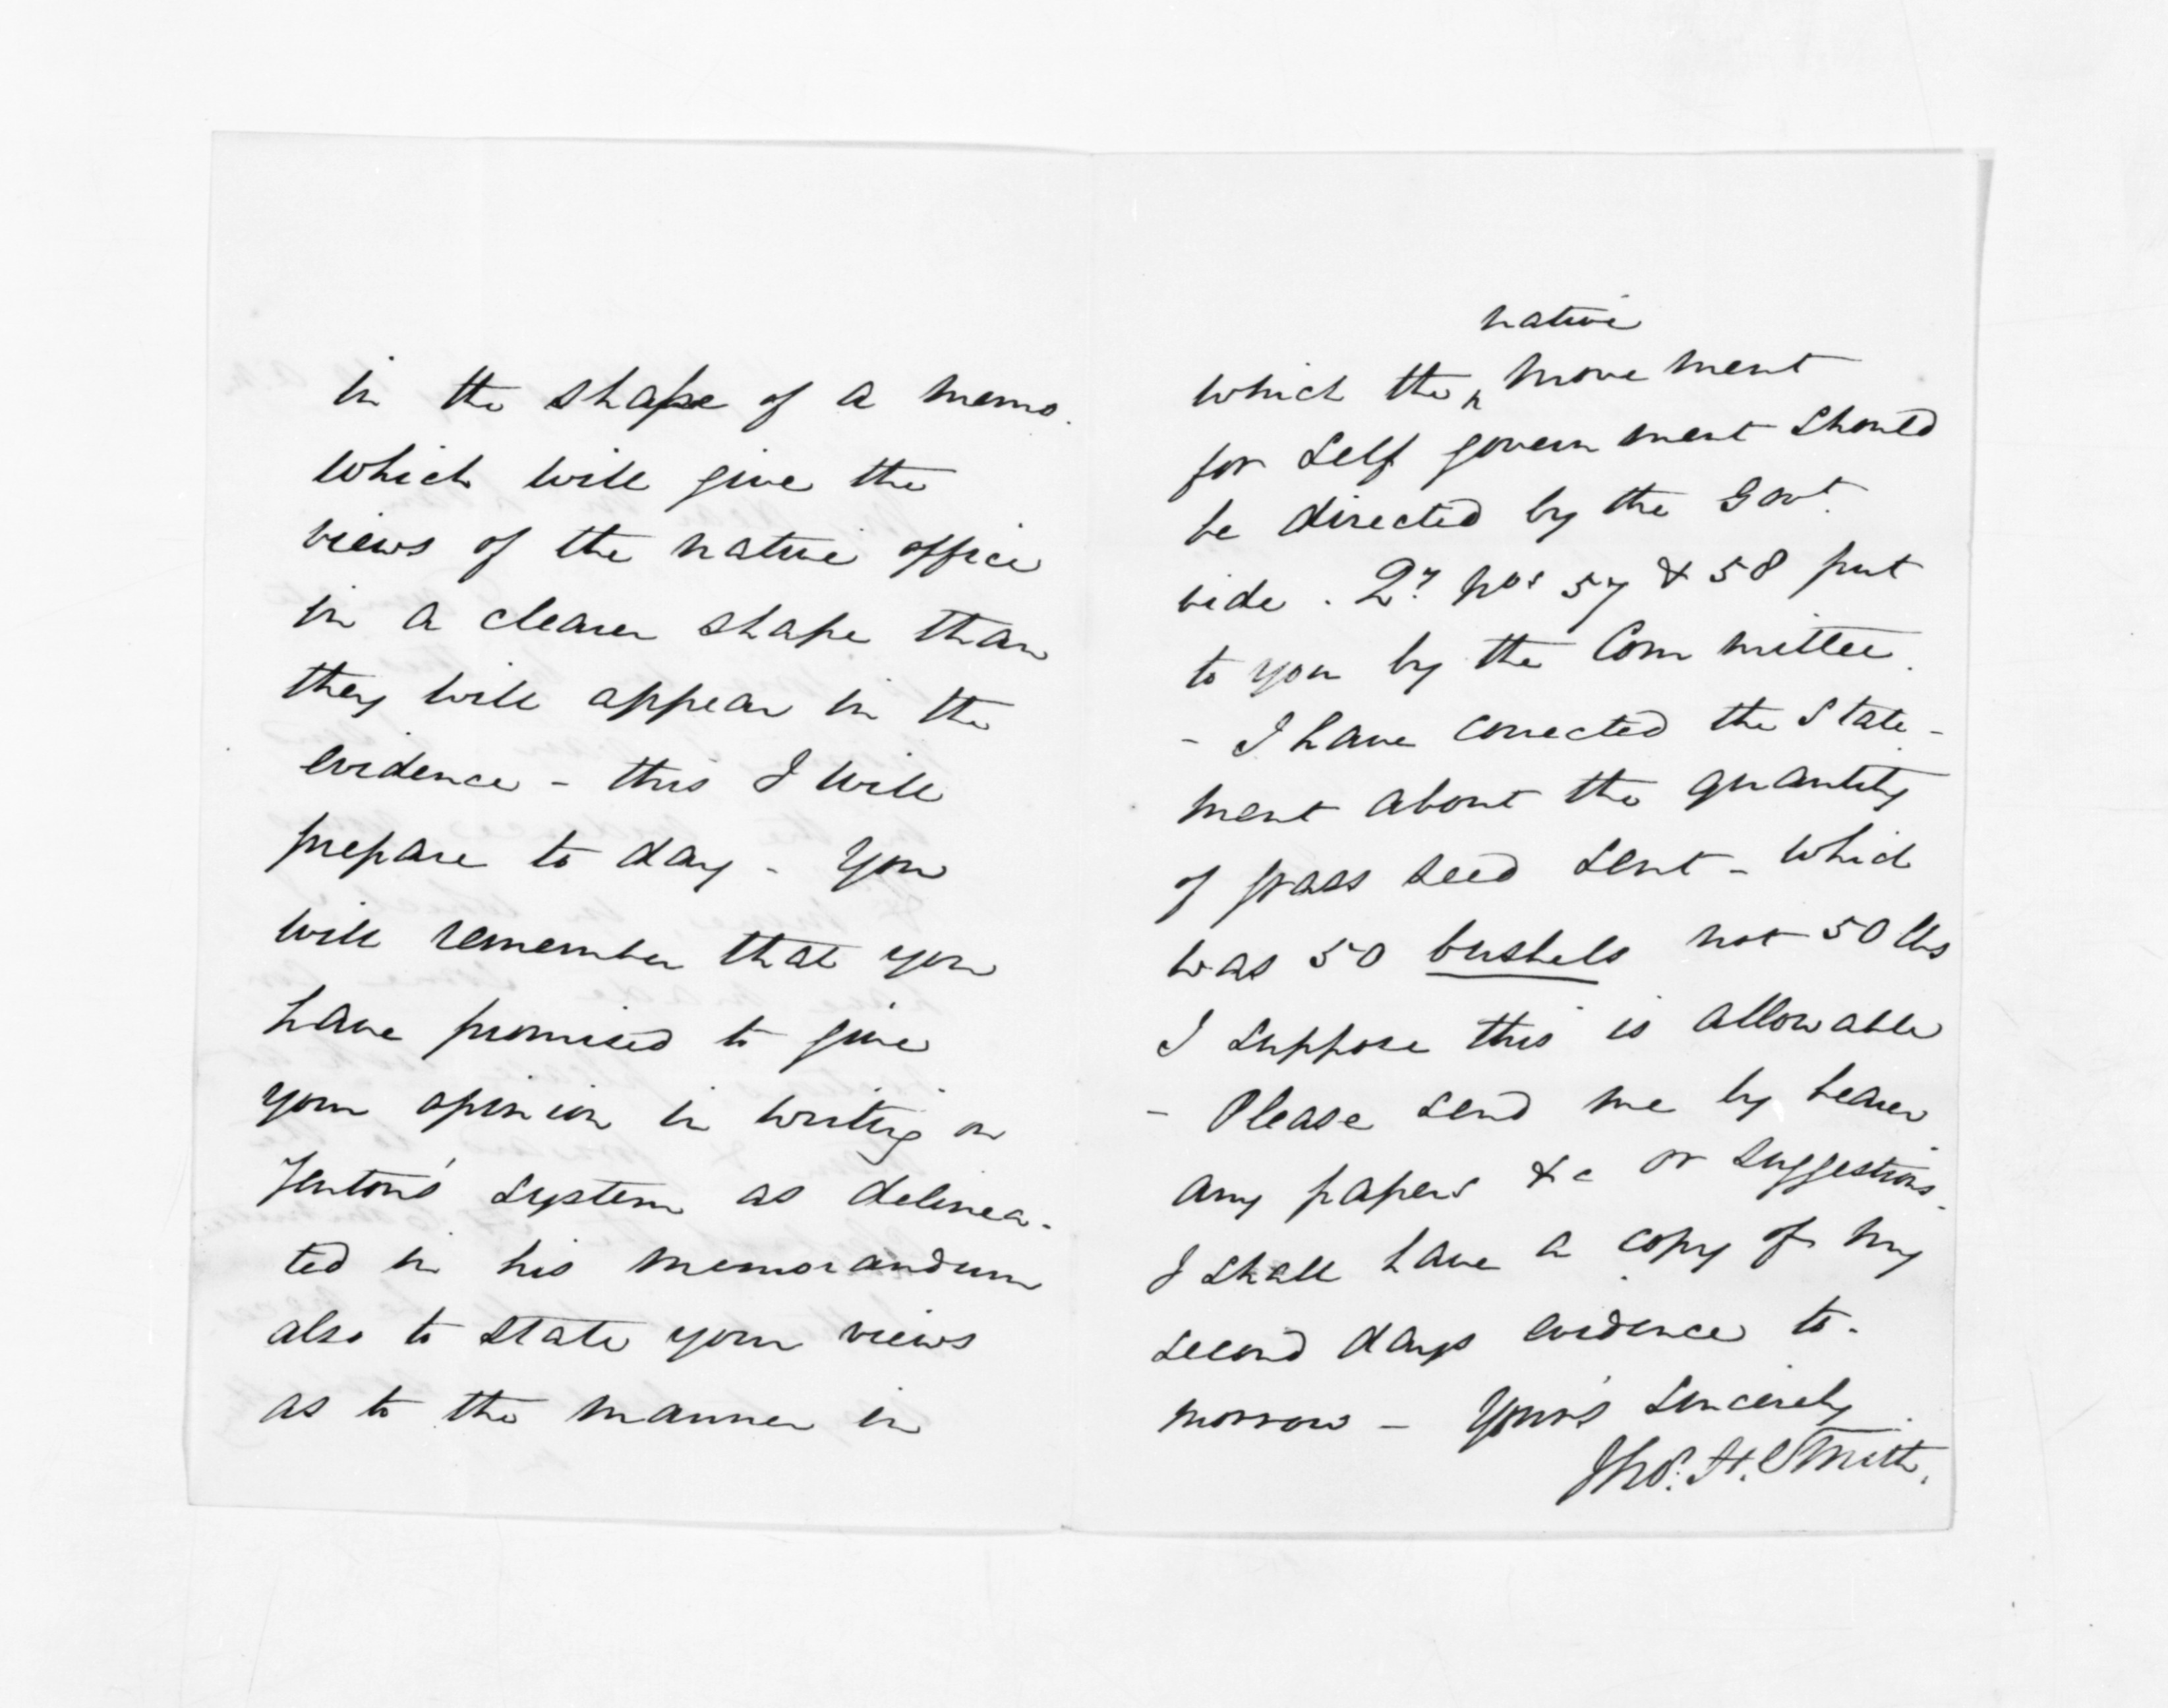 in the shape of a memo.
which will give the
views of the native office
in a clearer shape than
they will appear in the
evidence - this I will
prepare to day - You
will remember that you
have promised to give
your opinion in writing on
Fenton's system as delinea-
ted in his memorandum
also to state your views
as to the manner in
native
which the ^ movement
for self government should
be directed by the Govt.
vide. Qy Nos 57 & 58 put
to you by the Committee.
- I have corrected the state-
ment about the quantity
of grass seed sent - which
was 50 bushels not 50 lbs
I suppose this is allowable
- Please send me by bearer
any papers &c or suggestions.
I shall have a copy of my
second days evidence to-
morrow - Yours sincerely
Thos. H. Smith.